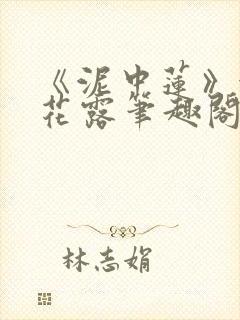 《泥中莲》
花露筆趣閣
林志娟